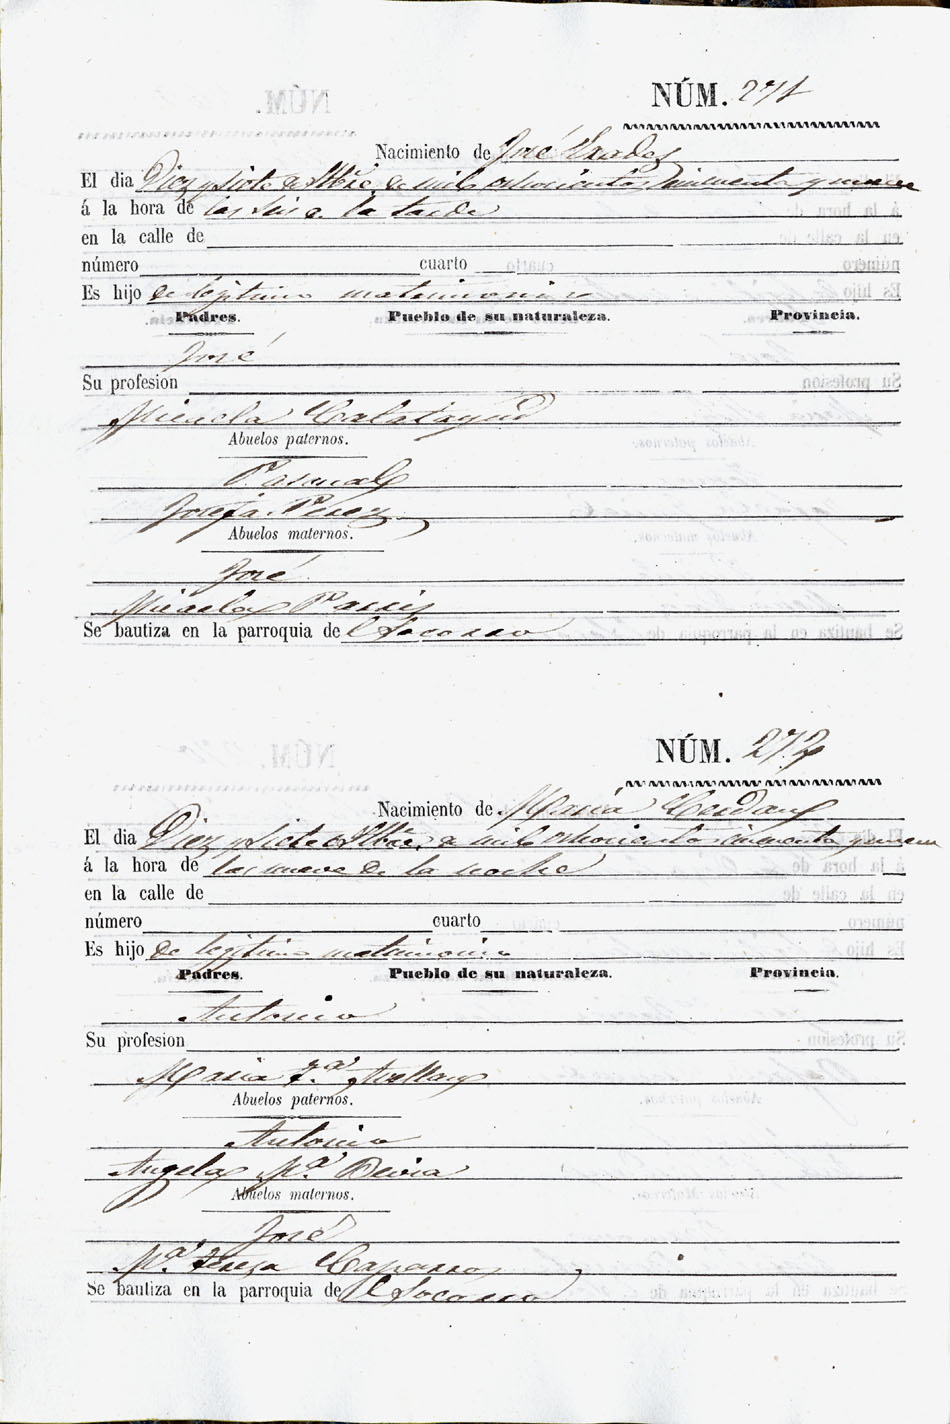 NÚM. 271
Nacimiento de José Prades
El dia Diez y siete de Stbre. de mil ochocientos cincuenta y nueve
á la hora de las seis de la tarde
en la calle de
número cuarto
Es hijo de legitimo matrimonio
Padres. Pueblo de su naturaleza. Provincia.
José
Su profesion
Micaela Calatayud
Abuelos paternos.
Pascual
Josefa Perez
Abuelos maternos.
José
Micaela
Se bautiza en la parroquia de el Socorro
NÚM. 272
Nacimiento de María Cerdan
El dia Diez y siete Stbre. de mil ochocientos cincuenta y nueve
á la hora de las nueve de la noche
en la calle de
número cuarto
Es hijo de legitimo matrimonio
Padres. Pueblo de su naturaleza. Provincia.
Antonio
Su profesion
Maria
Abuelos paternos.
Antonio
Angela Mª. Devia
Abuelos maternos.
José
Mª. Teresa Caparros
Se bautiza en la parroquia de el Socorro